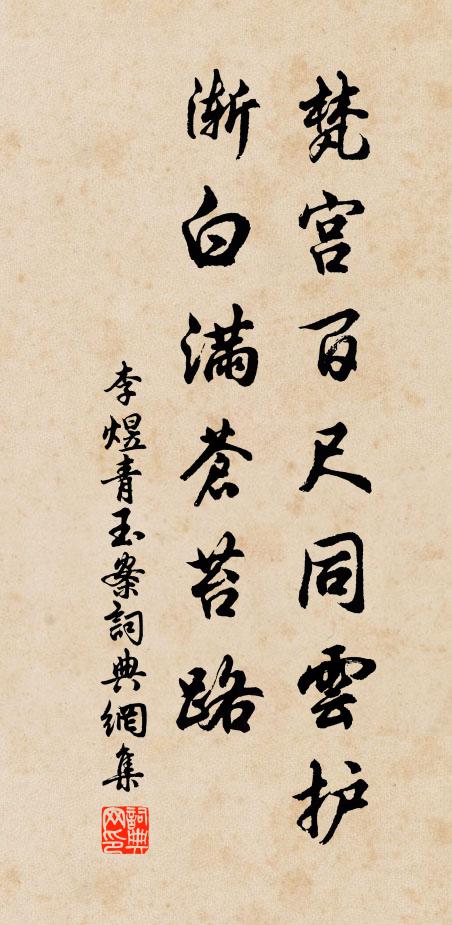 梵宫百尺同雲护
漸白满蒼苔路
李煜青玉案詞典網集
詞典网印